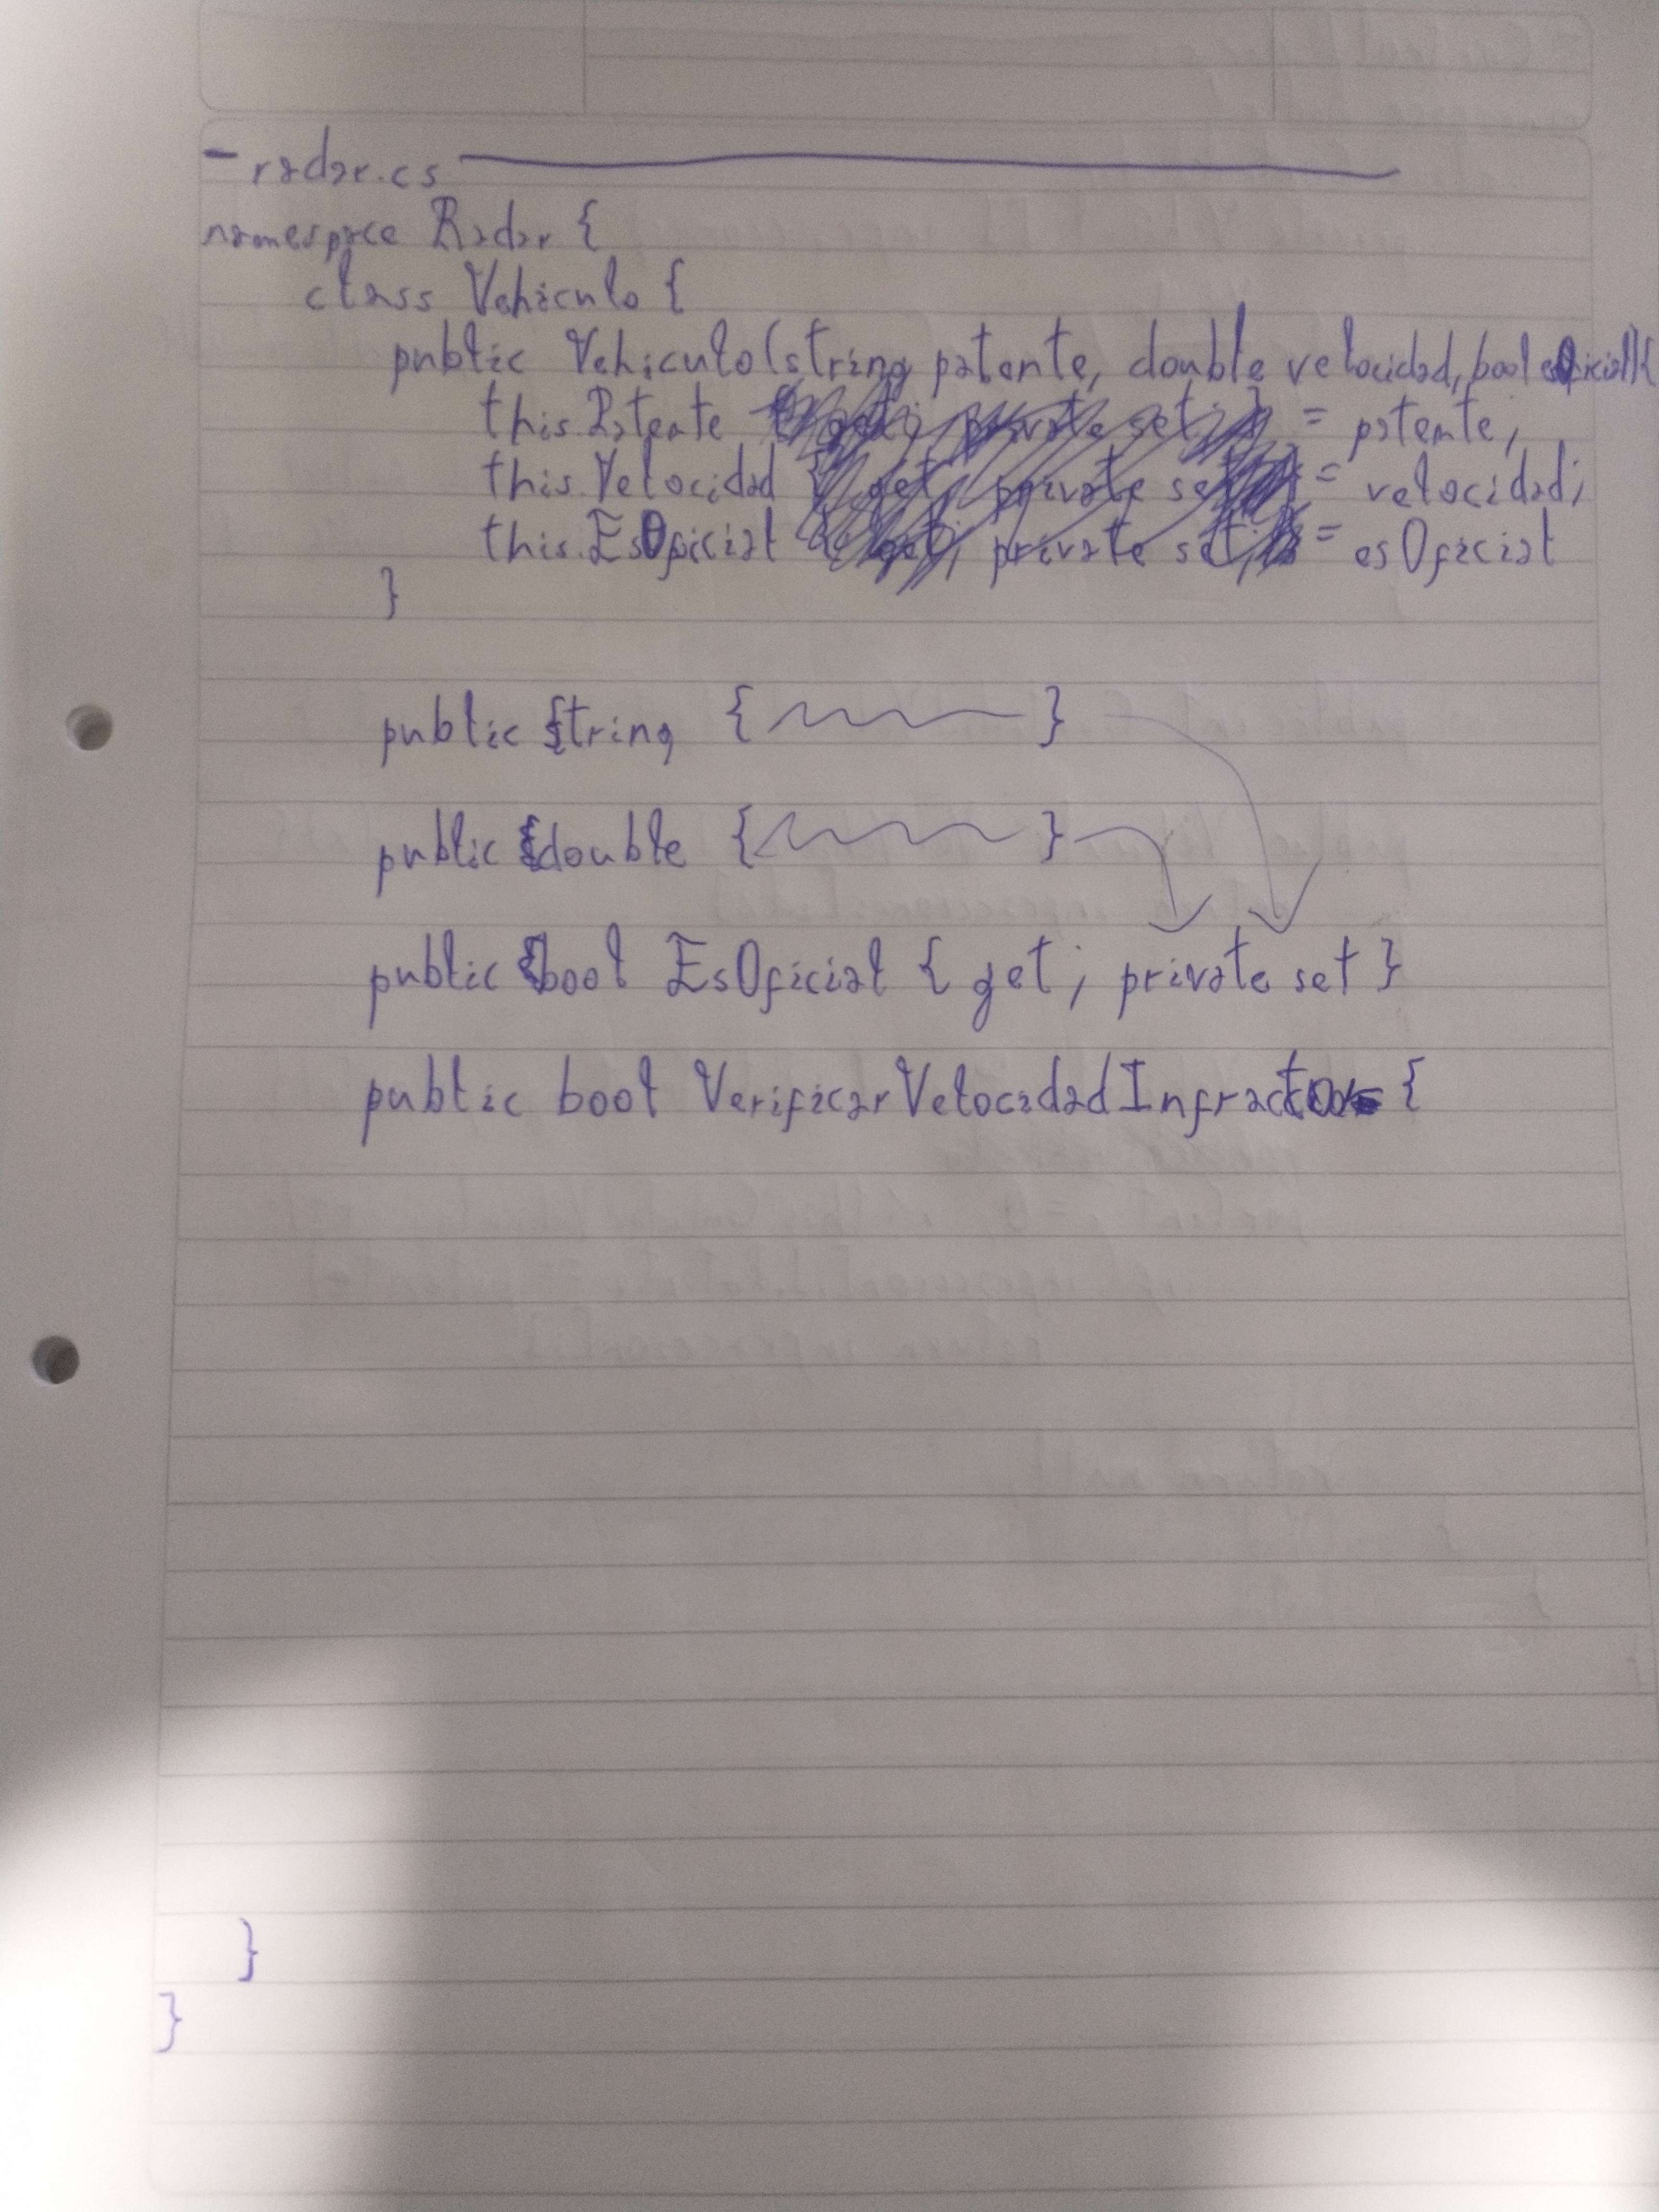 - radar.cs
namespace Radar {
class Vehiculo {
public Vehiculo(string patente, double velocidad, bool esOficial){
this.Patente = patente;
this.Velocidad { get; private set; } = velocidad;
this.EsOficial { get; private set; } = esOficial
}
public string { }
public double { }
public bool EsOficial { get; private set }
public bool VerificarVelocidadInfractor {
}
}